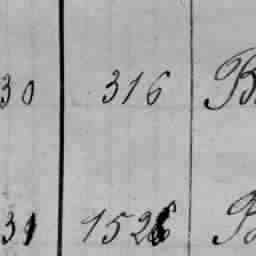 30 316 B
31 1526 B